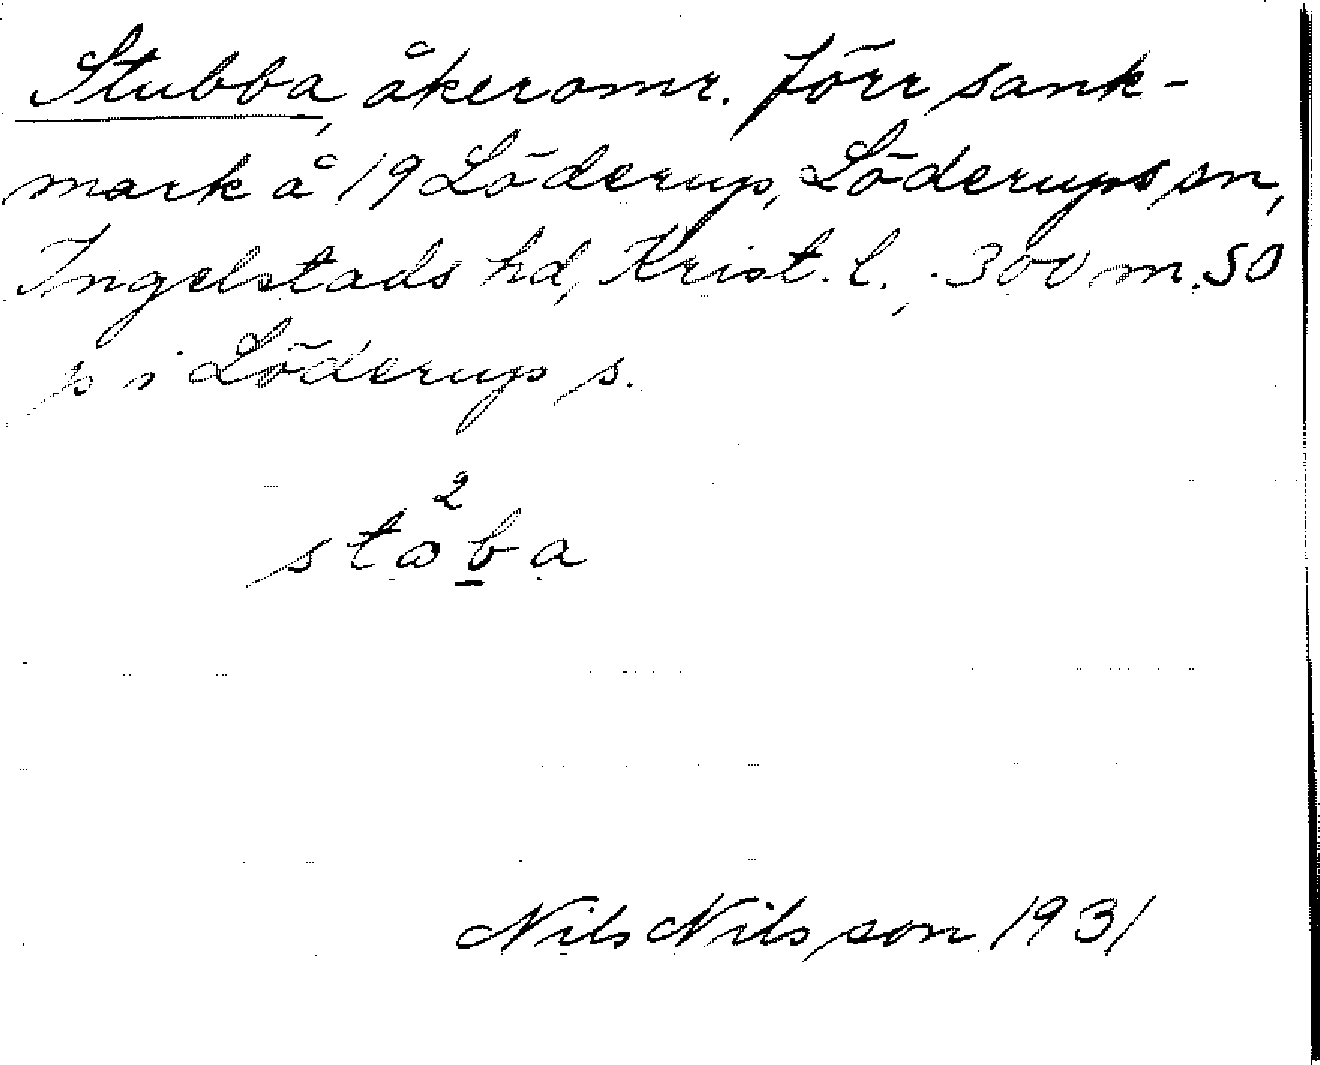 Stubba, åkeromr. förr sank-
mark å 19 Löderup, Löderups sn,
Ingelstads hd, Krist. l., 300 m. SO
p i Löderup s.
2
stɷba
Nils Nilsson 1931